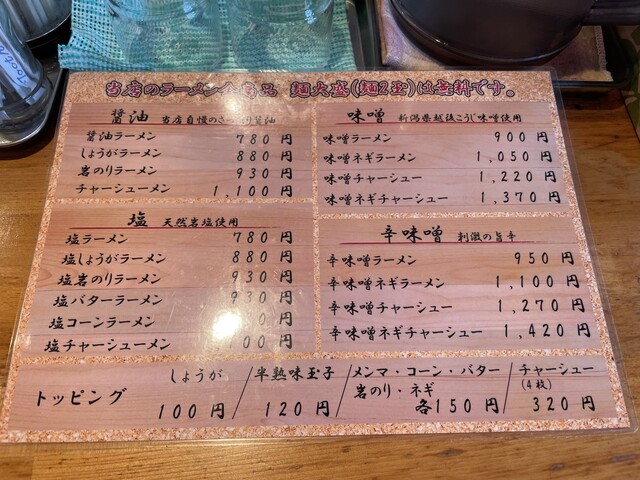 当店のラーメン全商品 麺大盛(麺2玉)は無料です。
醤油 当店自慢のさっぱり醤油
醤油ラーメン 780円
しょうがラーメン 880円
岩のりラーメン 930円
チャーシューメン 1,100円
塩 天然岩塩使用
塩ラーメン 780円
塩しょうがラーメン 880円
塩岩のりラーメン 930円
塩バターラーメン 930円
塩コーンラーメン 0円
塩チャーシューメン 100円
味噌 新潟県越後こうじ味噌使用
味噌ラーメン 900円
味噌ネギラーメン 1,050円
味噌チャーシュー 1,220円
味噌ネギチャーシュー 1,370円
辛味噌 刺激の旨辛
辛味噌ラーメン 950円
辛味噌ネギラーメン 1,100円
辛味噌チャーシュー 1,270円
辛味噌ネギチャーシュー 1,420円
トッピング
しょうが
100円
半熟味玉子
120円
メンマ・コーン・バター
岩のり・ネギ
各150円
チャーシュー
(4枚)
320円